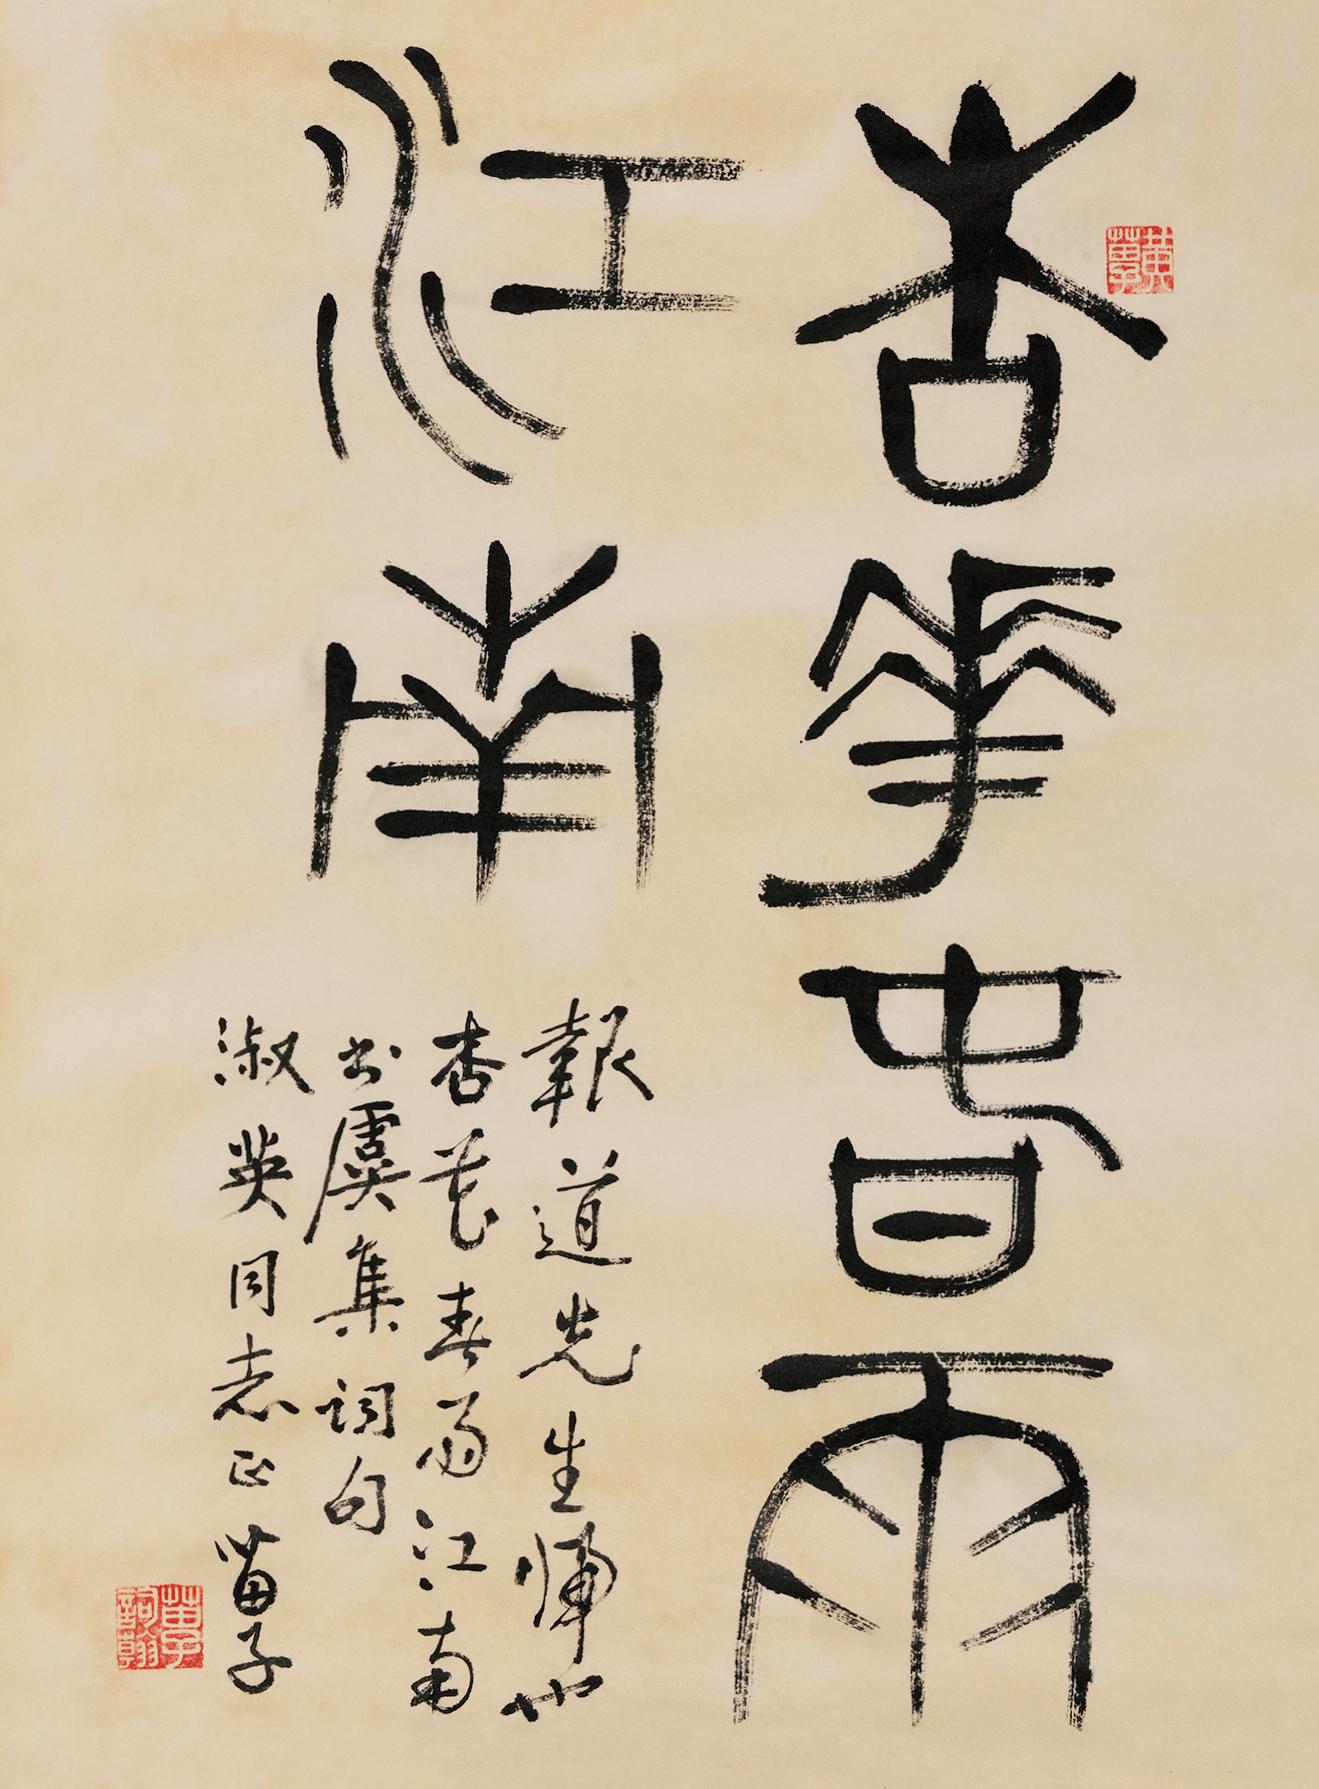 杏華春雨
江南
報道先生歸也
杏花春雨江南
书虞集词句
淑英同志正 苗子
黄苗子